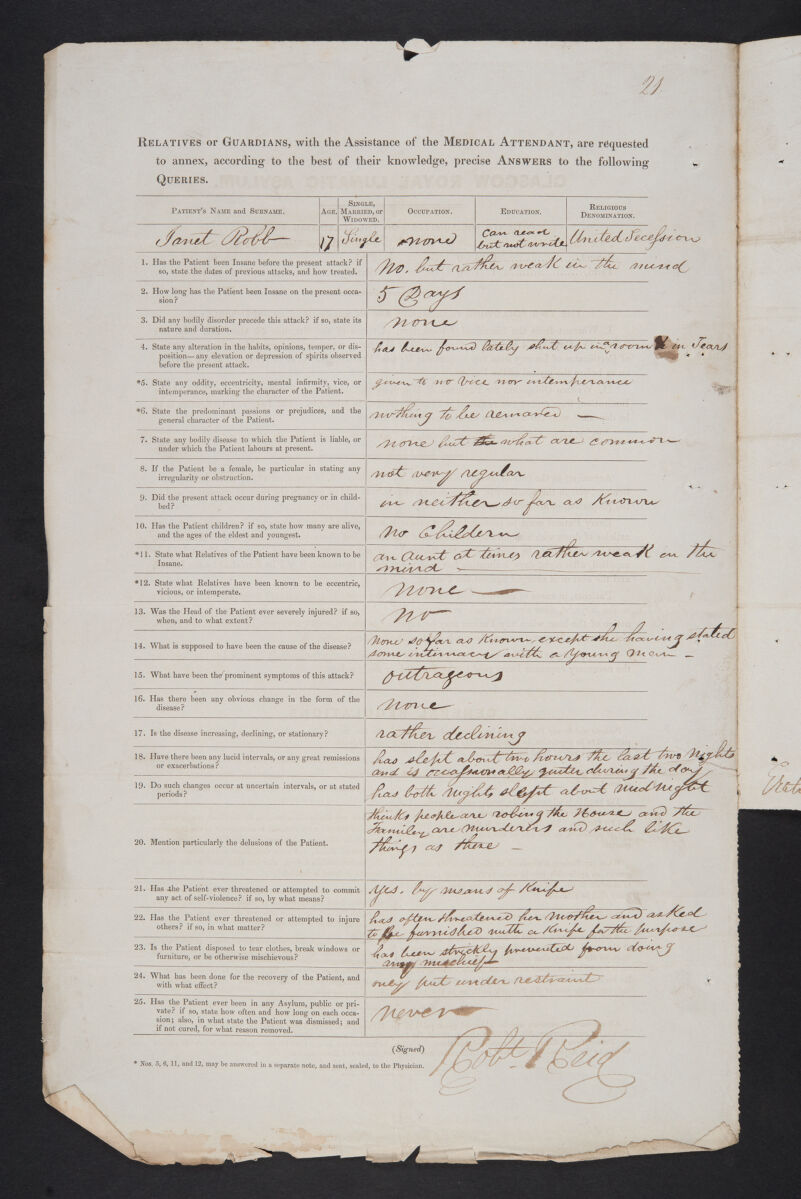 21
RELATIVES or GUARDIANS, with the Assistance of the MEDICAL ATTENDANT, are requested
to annex, according to the best of their knowledge, precise ANSWERS to the following
QUERIES.
PATIENT'S NAME and SURNAME. AGE. SINGLE, MARRIED, or WIDOWED. OCCUPATION. EDUCATION. RELIGIOUS DENOMINATION.
Janet Robb 17 Single none can read but not write United Secession
1. Has the Patient been Insane before the present attack? if
so, state the dates of previous attacks, and how treated.
No. but rather weak in the mind
2. How long has the Patient been Insane on the present occa-
sion?
5 Days
3. Did any bodily disorder precede this attack? if so, state its
nature and duration.
none
4. State any alteration in the habits, opinions, temper, or dis-
position—any elevation or depression of spirits observed
before the present attack.
has been found lately shut up in a room & in Tears
*5. State any oddity, eccentricity, mental infirmity, vice, or
intemperance, marking the character of the Patient.
given to no vice nor intemperance
*6. State the predominant passions or prejudices, and the
general character of the Patient.
nothing to be remarked —
7. State any bodily disease to which the Patient is liable, or
under which the Patient labours at present.
none but the what are common
8. If the Patient be a female, be particular in stating any
irregularity or obstruction.
not very regular
9. Did the present attack occur during pregnancy or in child-
bed?
in neither so far as Known
10. Has the Patient children? if so, state how many are alive,
and the ages of the eldest and youngest.
No Childern
*11. State what Relatives of the Patient have been known to be
Insane.
an aunt at times rather weak on the
mind —
*12. State what Relatives have been known to be eccentric,
vicious, or intemperate.
None —
13. Was the Head of the Patient ever severely injured? if so,
when, and to what extent?
no
14. What is supposed to have been the cause of the disease?
None so far as Known, except she having stated
some intimacy with a young man —
15. What have been the prominent symptoms of this attack?
outrageous
16. Has there been any obvious change in the form of the
disease?
None
17. Is the disease increasing, declining, or stationary?
rather declining
18. Have there been any lucid intervals, or any great remissions
or exacerbations?
has slept about two hours the last two Nights
and is occassionally quiter during the day
19. Do such changes occur at uncertain intervals, or at stated
periods?
has both nights slept about midnight
20. Mention particularly the delusions of the Patient.
thinks people are robing the House and the
Familey are murderers and such like
things as these —
21. Has the Patient ever threatened or attempted to commit
any act of self-violence? if so, by what means?
Yes. by means of Knife
22. Has the Patient ever threatened or attempted to injure
others? if so, in what matter?
has often threatened her mother and asked
to be furnished with a Knife for the purpose
23. Is the Patient disposed to tear clothes, break windows or
furniture, or be otherwise mischievous?
has been strickly prevented from doing
any mischief
24. What has been done for the recovery of the Patient, and
with what effect?
only put under restraint
25. Has the Patient ever been in any Asylum, public or pri-
vate? if so, state how often and how long on each occa-
sion; also, in what state the Patient was dismissed; and
if not cured, for what reason removed.
never
(Signed)
Robt. Reid
* Nos. 5, 6, 11, and 12, may be answered in a separate note, and sent, sealed, to the Physician.